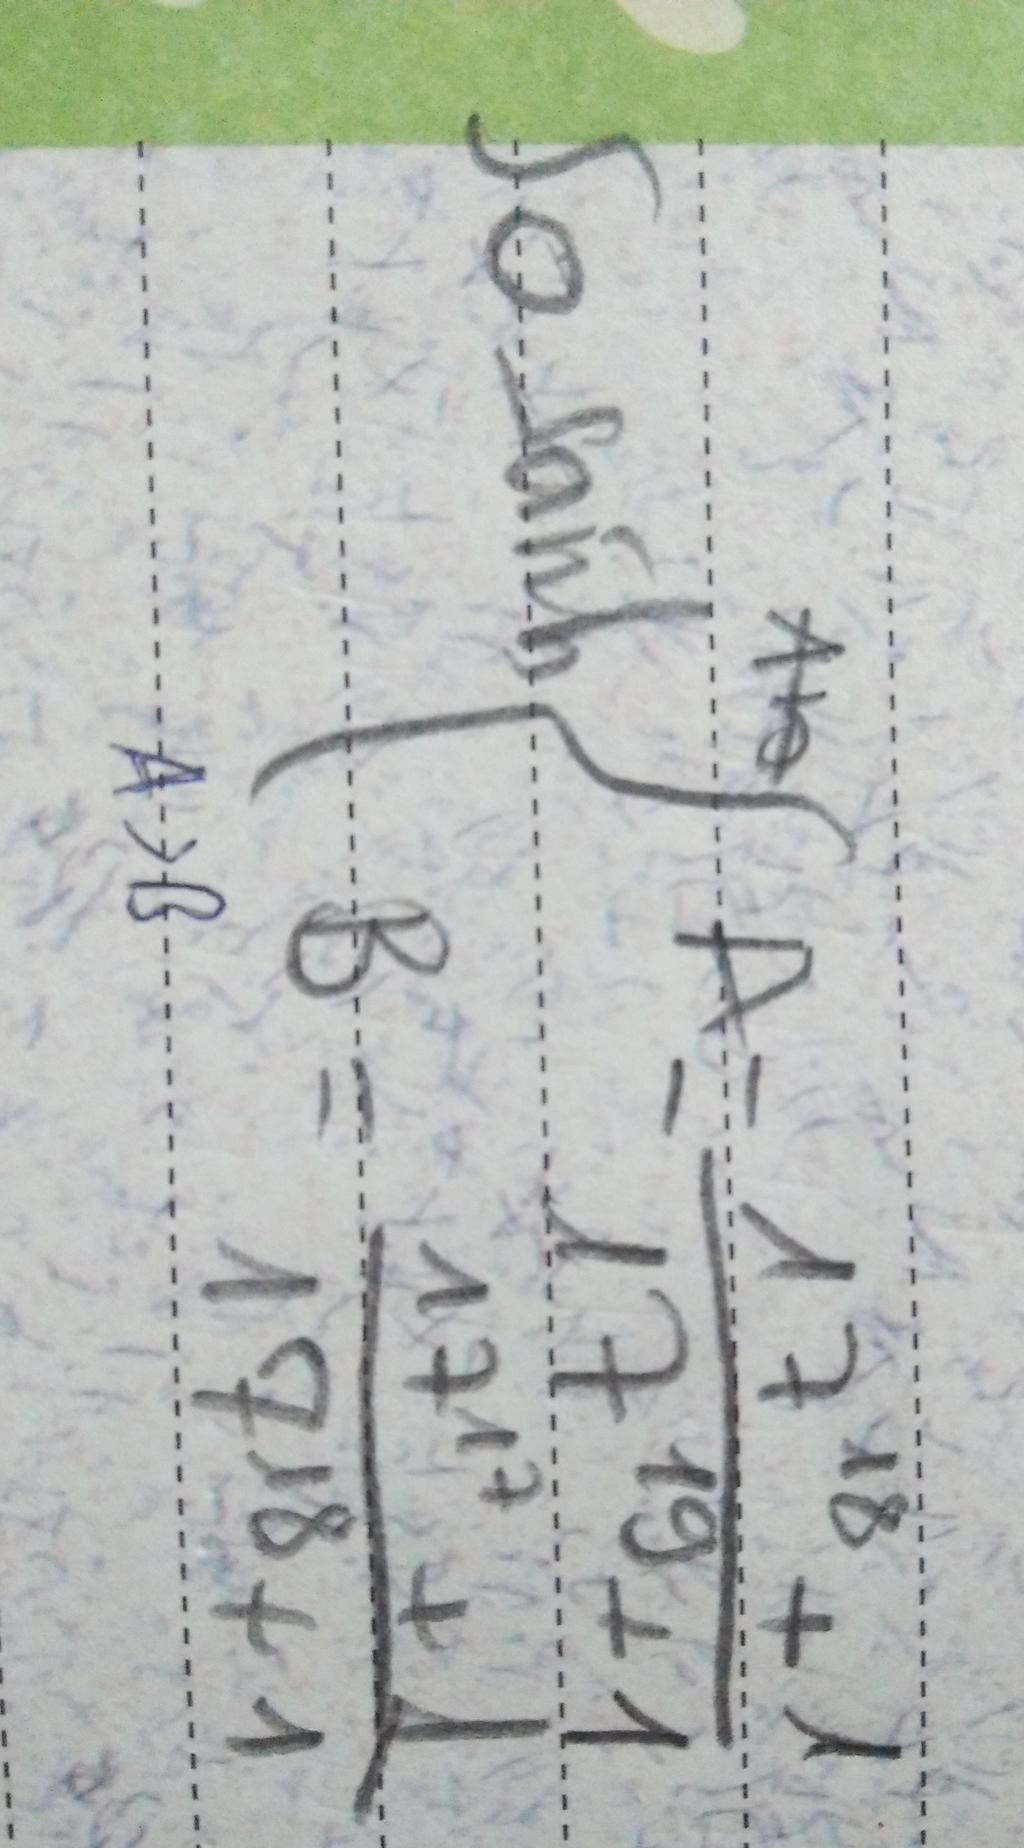 So sánh
A = 17^18 + 1
17^19 + 1
B = 17^17 + 1
17^18 + 1
A > B